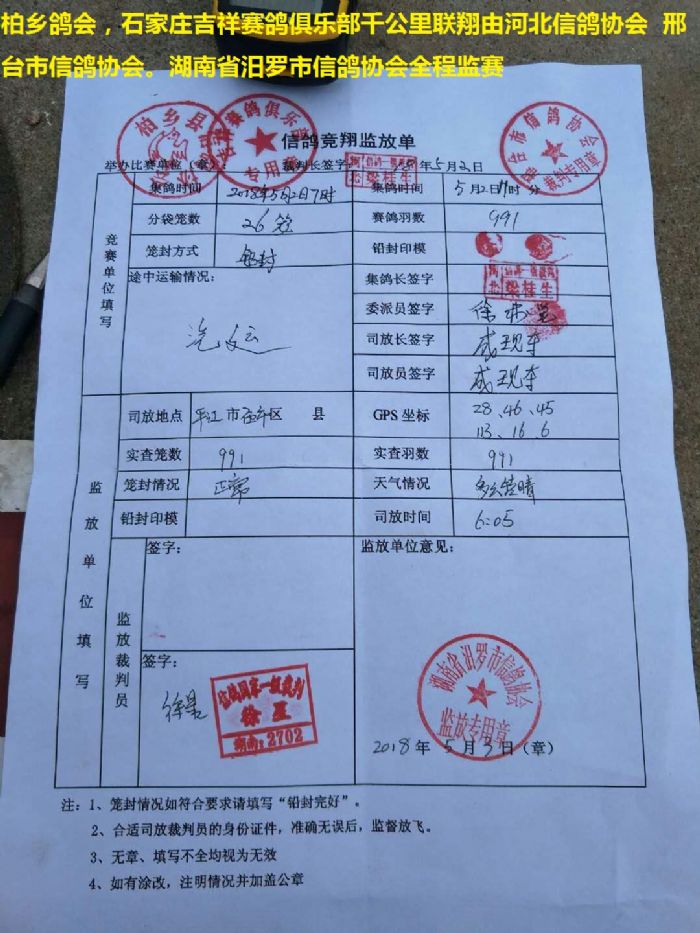 柏乡鸽会，石家庄吉祥赛鸽俱乐部千公里联翔由河北信鸽协会 邢
台市信鸽协会。湖南省汨罗市信鸽协会全程监赛
信鸽竞翔监放单
举办比赛单位（章） 裁判长签字 年5月2日
竞赛单位填写
集鸽时间 2018年5月2日7时 集鸽时间 5月2日 时 分
分袋笼数 26笼 赛鸽羽数 991
笼封方式 铅封 铅封印模
途中运输情况： 汽运 集鸽长签字 梁桂生
委派员签字 徐
司放长签字 成现车
司放员签字 成现车
监放单位填写
司放地点 平江市伍市区 县 GPS 坐标 28、46、45
113、16、6
实查笼数 991 实查羽数 991
笼封情况 正常 天气情况 多云转晴
铅封印模 司放时间 6:05
监放裁判员
签字： 监放单位意见：
签字：
徐星
信鸽国家一级裁判
徐星
湖南：2702
湖南省汨罗市信鸽协会
监放专用章
2018年5月3日（章）
注：1、笼封情况如符合要求请填写“铅封完好”。
2、合适司放裁判员的身份证件，准确无误后，监督放飞。
3、无章、填写不全均视为无效
4、如有涂改，注明情况并加盖公章